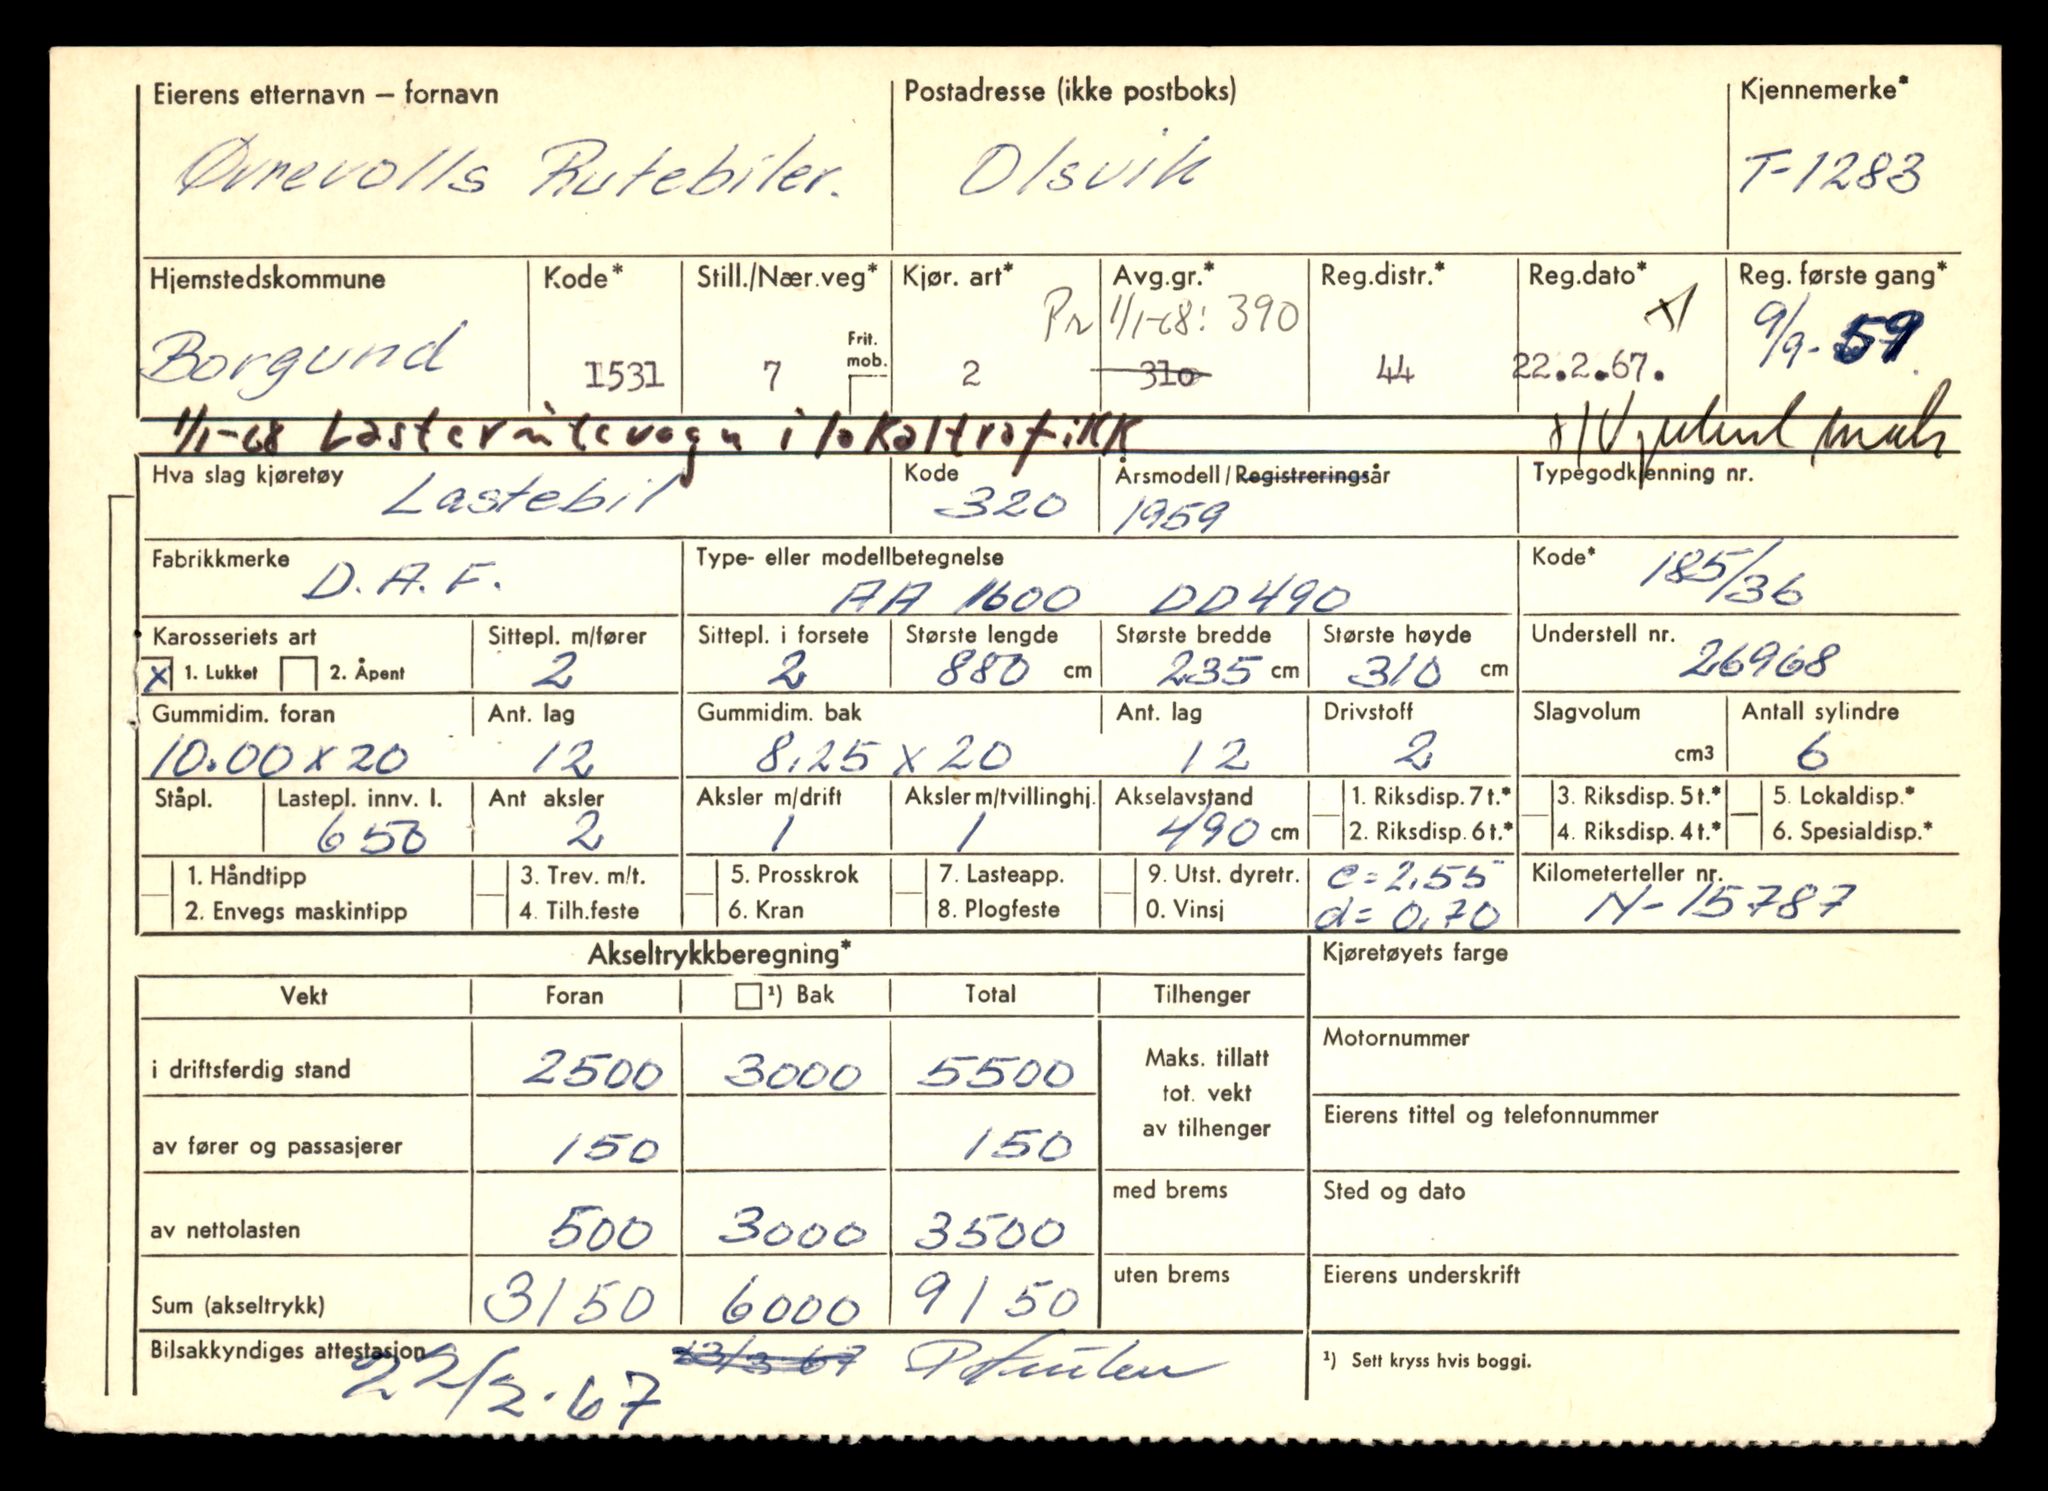 Eierens etternavn – fornavn Postadresse (ikke postboks) Kjennemerke*
Øvrevolls Rutebiler. Olsvik T-1283
Hjemstedskommune Kode* Still./Nær.veg* Kjør. art* Avg.gr.* Reg.distr.* Reg.dato* Reg. første gang*
Pr 1/1-68: 390 x/
Borgund 1531 7 Frit. mob. 2 310 44 22.2.67. 9/9-59
1/1-68 Lasterutevogn i lokaltrafikk
Hva slag kjøretøy Kode Årsmodell/Registreringsår Typegodkjenning nr.
Lastebil 320 1959
Fabrikkmerke Type- eller modellbetegnelse Kode*
D.A.F. AA 1600 DD490 185/36
Karosseriets art Sittepl. m/fører Sittepl. i forsete Største lengde Største bredde Største høyde Understell nr.
x 1. Lukket 2. Åpent 2 2 880 cm 235 cm 310 cm 26968
Gummidim. foran Ant. lag Gummidim. bak Ant. lag Drivstoff Slagvolum Antall sylindre
10.00 x 20 12 8.25 x 20 12 2 cm3 6
Ståpl. Lastepl. innv. l. Ant aksler Aksler m/drift Aksler m/tvillinghj. Akselavstand 1. Riksdisp. 7 t.* 3. Riksdisp. 5 t.* 5. Lokaldisp.*
650 2 1 1 490 cm 2. Riksdisp. 6 t.* 4. Riksdisp. 4 t.* 6. Spesialdisp.*
1. Håndtipp 3. Trev. m/t. 5. Prosskrok 7. Lasteapp. 9. Utst. dyretr. c=2.55 Kilometerteller nr.
2. Envegs maskintipp 4. Tilh.feste 6. Kran 8. Plogfeste 0. Vinsj d=0.70 N-15787
Akseltrykkberegning* Kjøretøyets farge
Vekt Foran ¹) Bak Total Tilhenger
Motornummer
i driftsferdig stand 2500 3000 5500 Maks. tillatt
tot. vekt
Eierens tittel og telefonnummer
av fører og passasjerer 150 150 av tilhenger
med brems Sted og dato
av nettolasten 500 3000 3500
uten brems Eierens underskrift
Sum (akseltrykk) 3150 6000 9150
Bilsakkyndiges attestasjon ¹) Sett kryss hvis boggi.
22/2-67